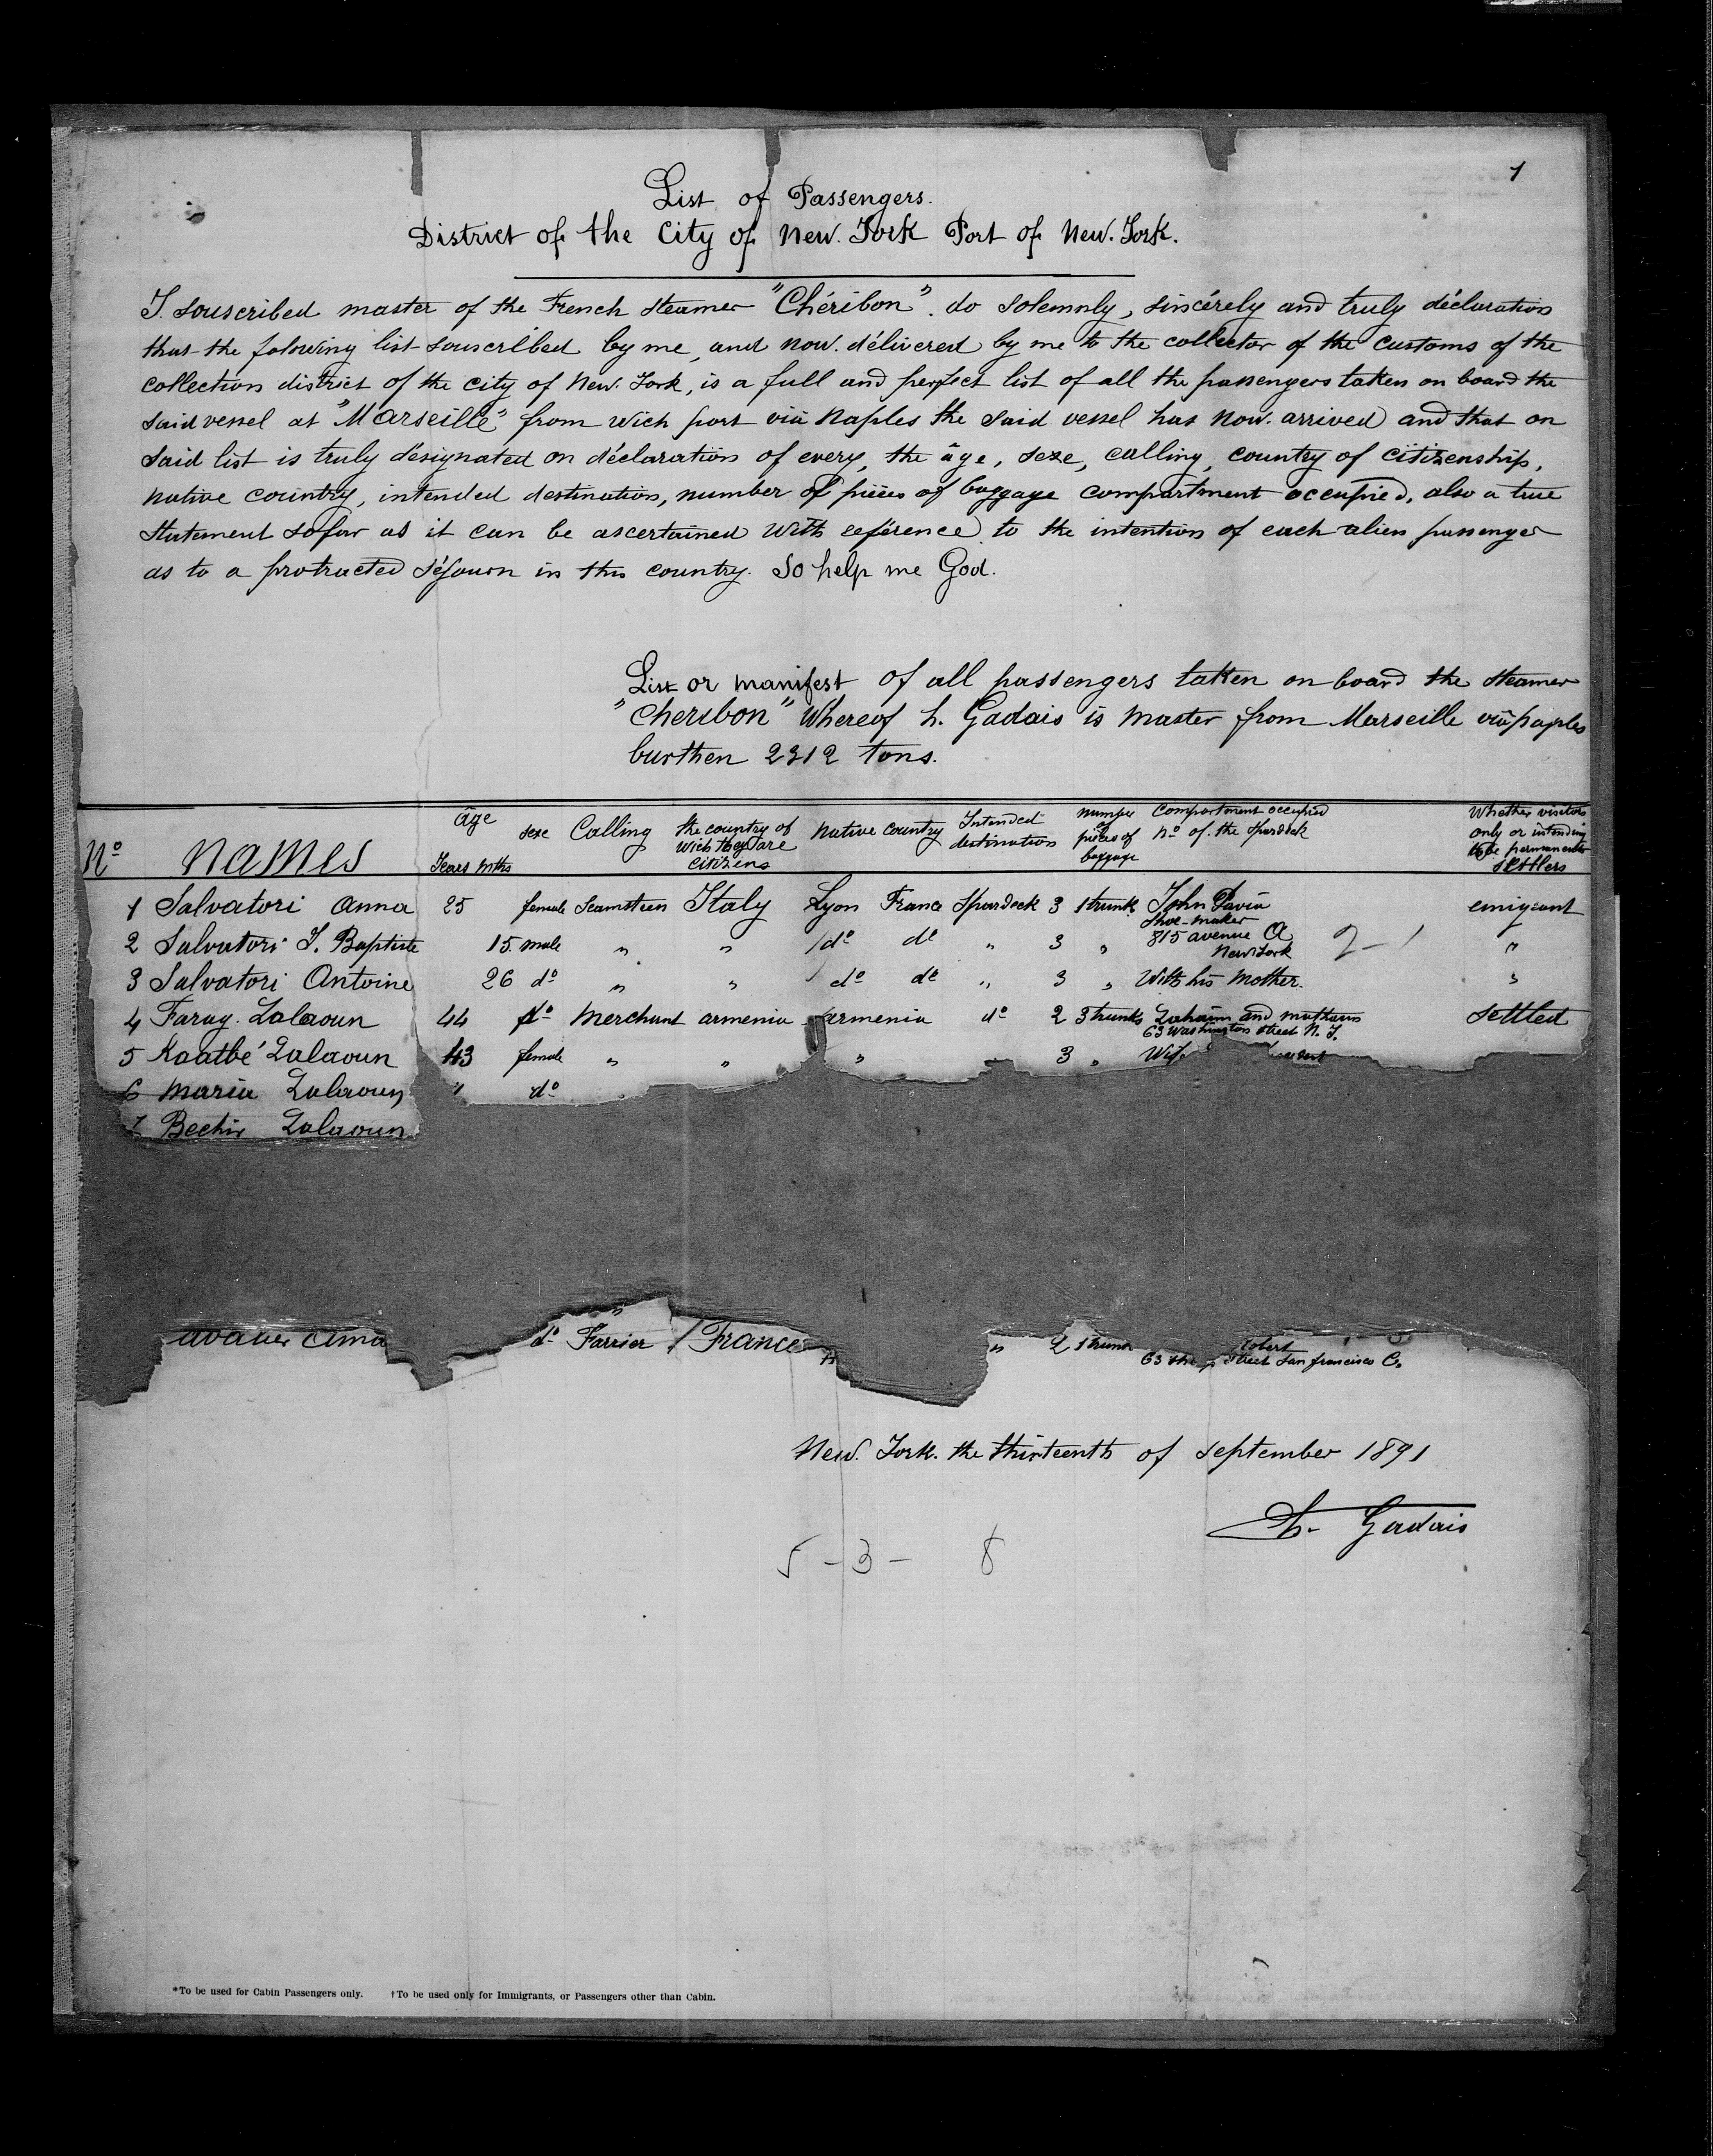 1
List of Passengers.
District of the City of New. York Port of New. York.
I. souscribed master of the French steamer "Chéribon". do solemnly, sincérely and truly déclaration
that the folowing list souscribed by me, and now. délivered by me to the collector of the customs of the
collection district of the city of New. York, is a full and perfect list of all the passengers taken on board the
said vessel at "Marseille" from wich port via Naples the said vessel has now. arrived and that on
said list is truly désignated on déclaration of every, the âge, sexe, calling, country of citizenship,
native country, intended destination, number of pièces of baggage compartment occupied, also a true
statement sofar as it can be ascertained with reférence to the intention of each alien passenger
as to a protracted séjourn in this country. So help me God.
List or manifest of all passengers taken on board the steamer
"Cheribon" Whereof h. Gadais is master from Marseille via Naples
burthen 2312 tons.
No NAMES âge Years Mths sexe Calling the country of wich they are citizens native country Intended destination number of pieces of baggage Compartment occupied no of. the spardeck Whether visitors only or intending to be permanents settlers
1 Salvatori Anna 25 female Seamsteen Italy Lyon France Spardeck 3 1 trunk John Pavia emigrant
shoe-maker
2 Salvatori J. Baptiste 15. male " " do do " 3 " 815 avenue A 2-1 "
New York
3 Salvatori Antoine 26 do " " do do " 3 " With his Mother. "
4 Farag. Zalaoun 44 do Merchant armenia armenia do 2 3 trunks and settled
63 Washington street N. Y.
5 Kaatbé Zalaoun 43 female " " " 3 "
6 Maria Zalaoun do
7 Bechir Zalaoun
do Farrier France " 2 1 trunk Robert
63 street San francisco C.
New. York. the thirteenth of september 1891
h. Gadais
5-3- 8
*To be used for Cabin Passengers only. †To be used only for Immigrants, or Passengers other than Cabin.